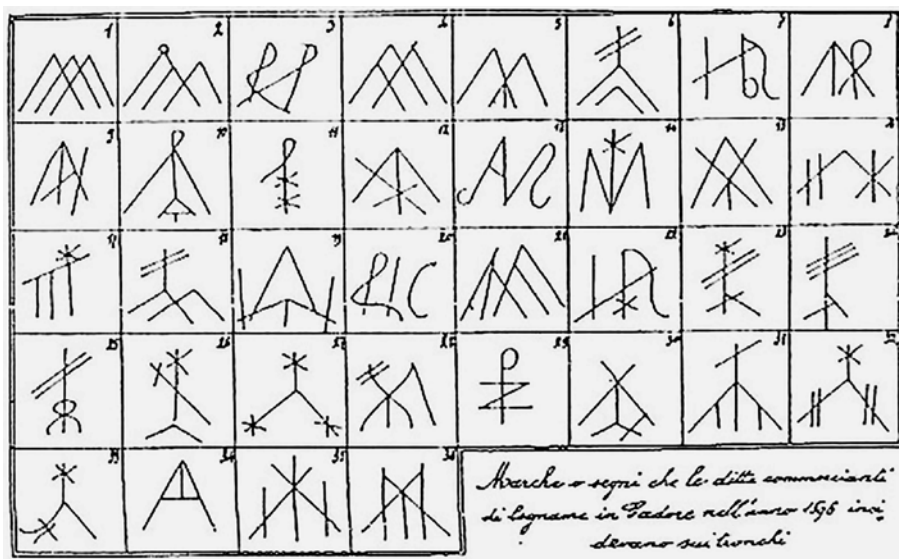 1 2 3 4 5 6 7 8
9 10 11 12 13 14 15 16
17 18 19 20 21 22 23 24
25 26 27 28 29 30 31 32
33 34 35 36
Marche o segni che le ditte commercianti
di legname in Cadore nell'anno inci
devano sui tronchi